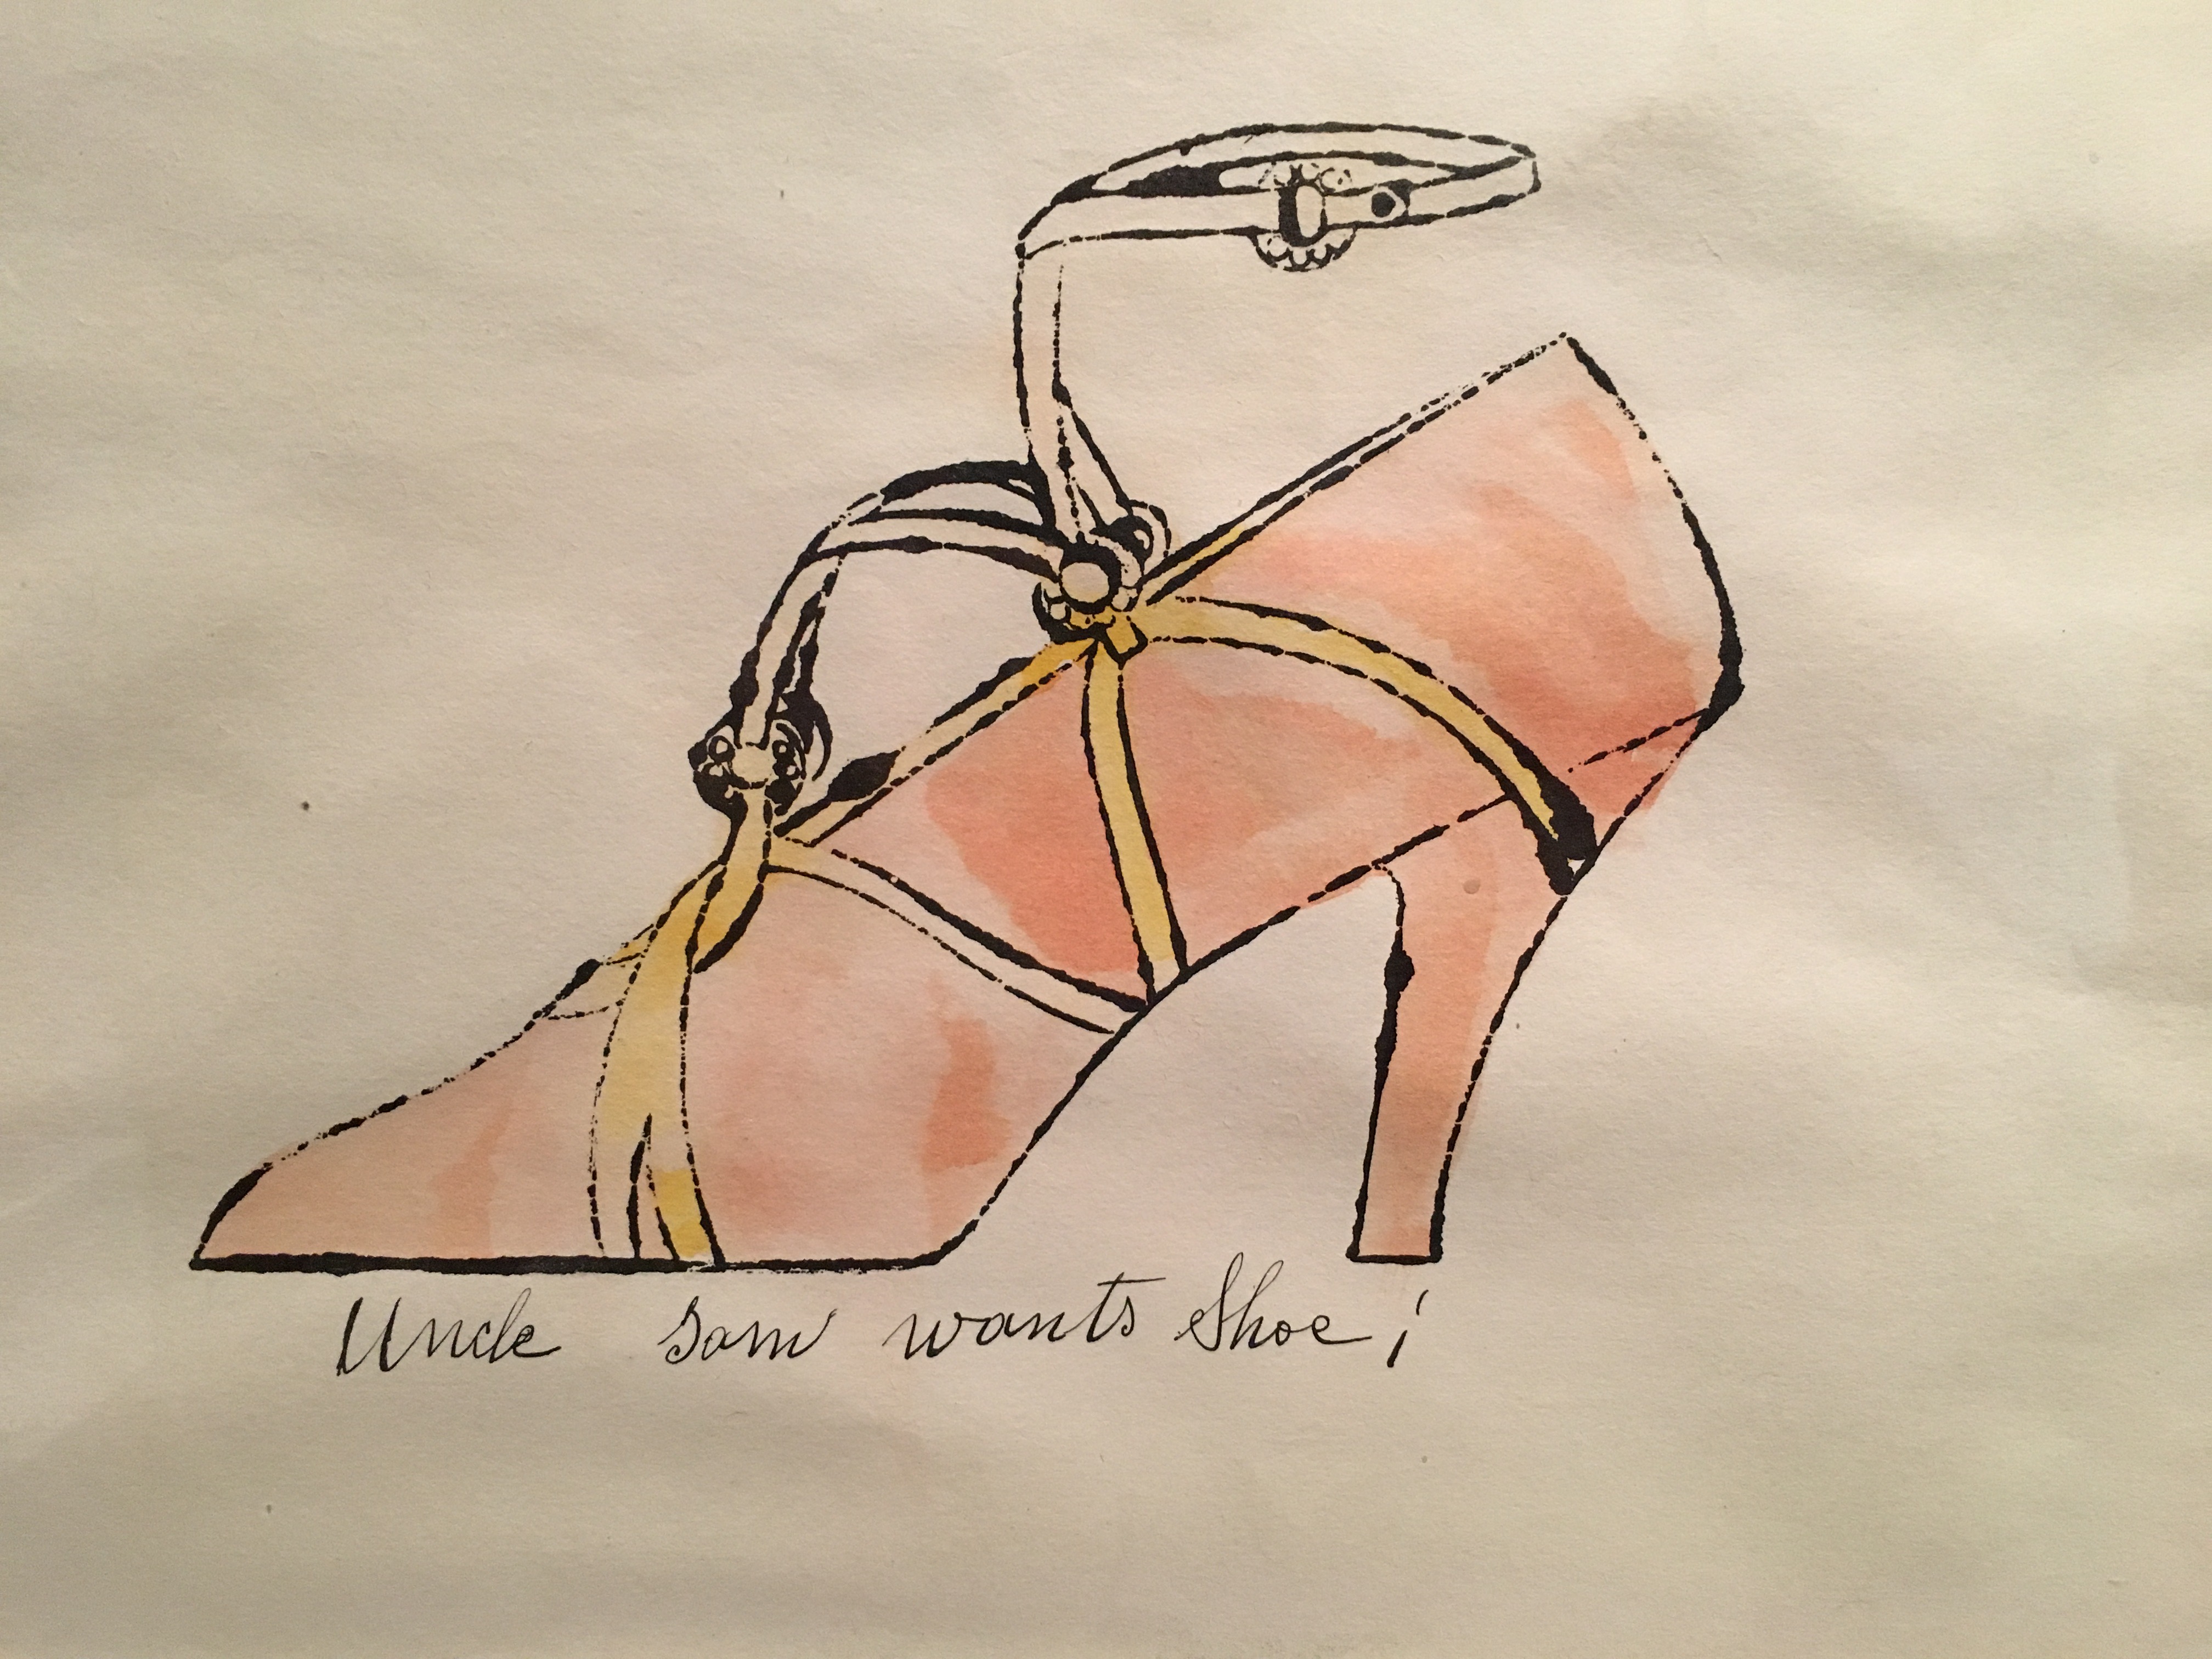 Uncle Sam wants Shoe !